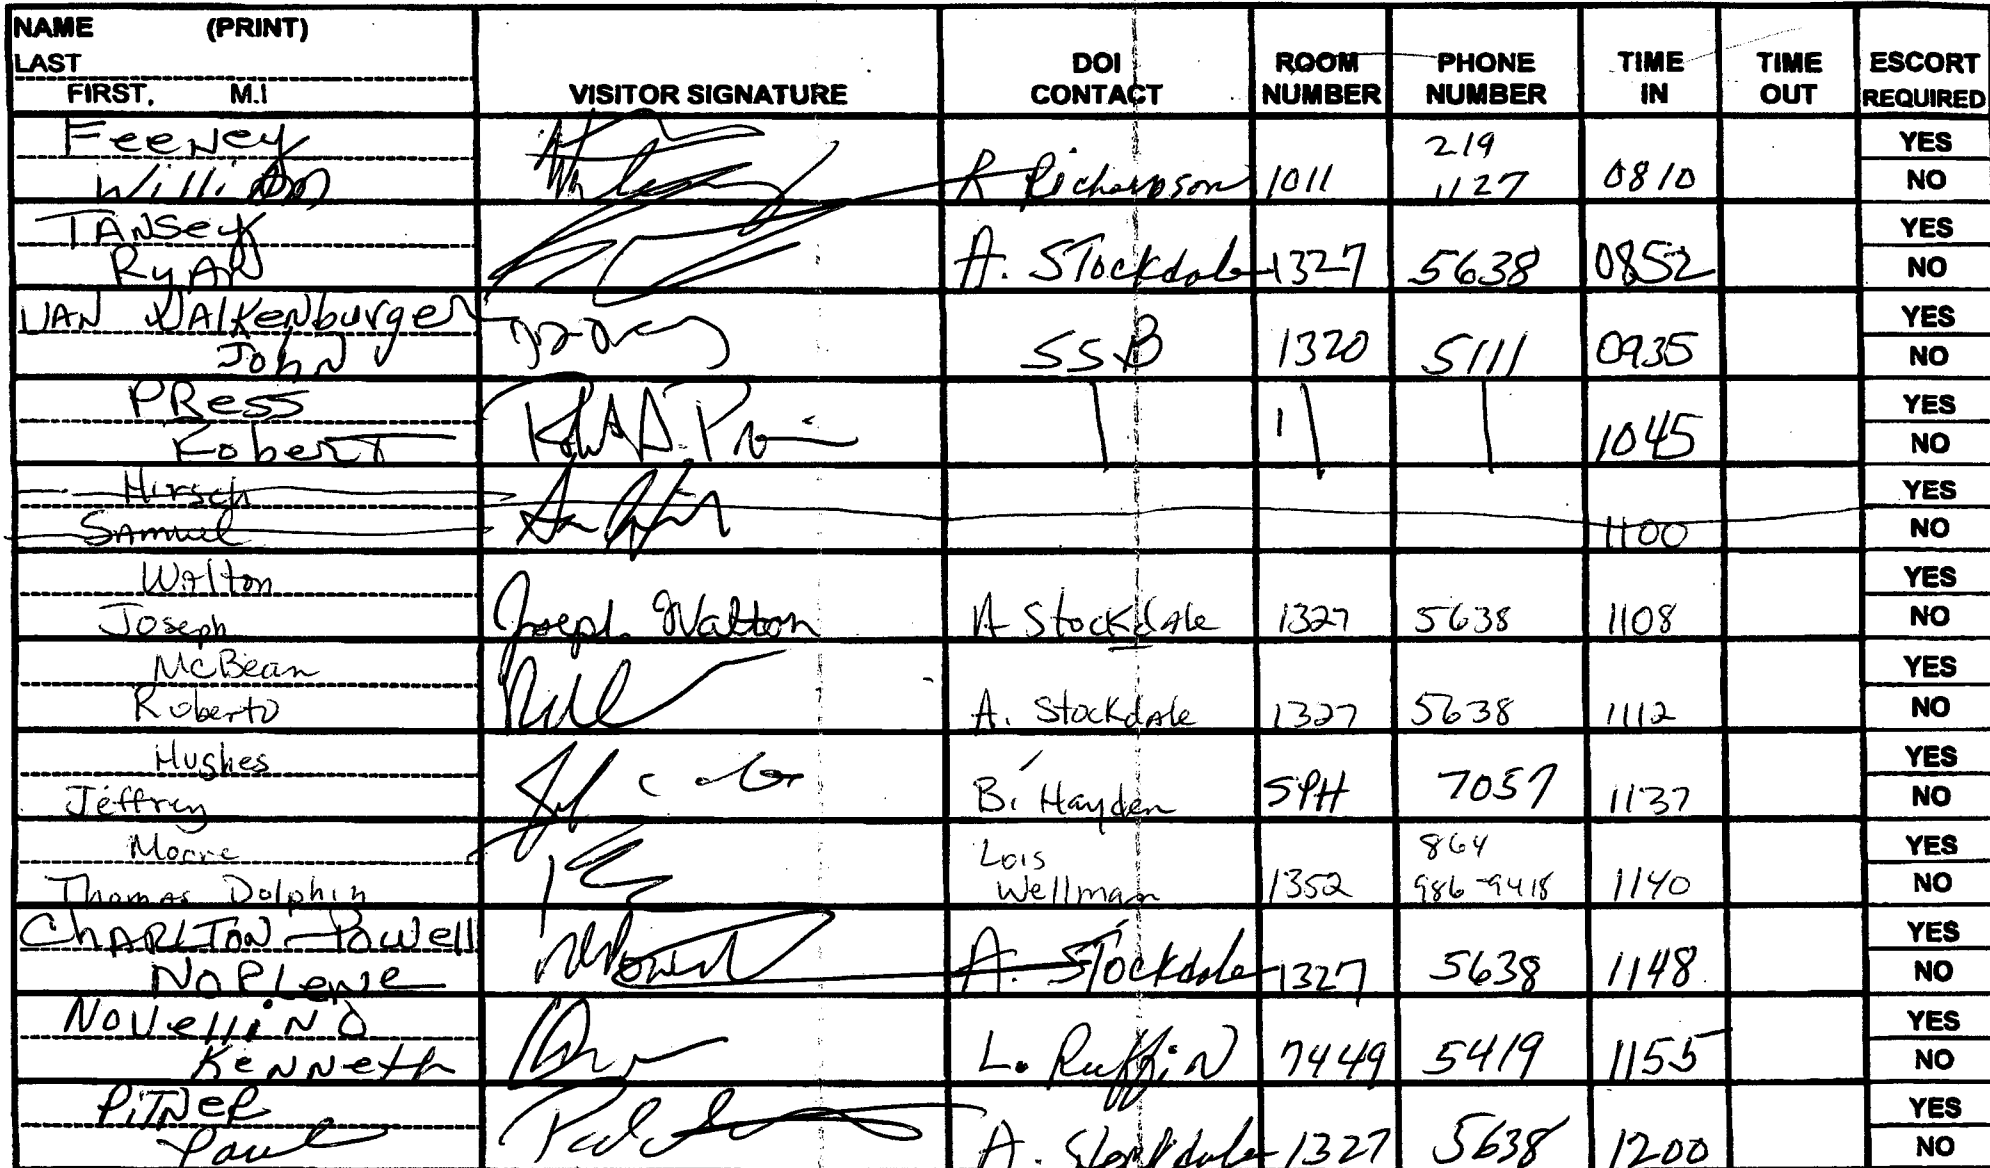 NAME (PRINT)
LAST
FIRST, M.I
VISITOR SIGNATURE
DOI CONTACT
ROOM NUMBER
PHONE NUMBER
TIME IN
TIME OUT
ESCORT REQUIRED
Feeney
William
R Richardson 1011 219 1127 0810 YES NO
TANSey
RyAN
A. Stockdale 1327 5638 0852 YES NO
VAN VALKenburger
John
SSB 1320 5111 0935 YES NO
PRess
Robert
1045 YES NO
Hirsch
Samuel
1100 YES NO
Walton
Joseph
Joseph Walton A Stockdale 1327 5638 1108 YES NO
McBean
Roberto
A. Stockdale 1327 5638 1112 YES NO
Hughes
Jeffrey
B. Hayden SPH 7057 1137 YES NO
Thomas Dolphin
Lois Wellman 1352 864 986-9418 1140 YES NO
ChARLTON-Powell
A. Stockdale 1327 5638 1148 YES NO
NOVelliNO
KeNNeth
L. RuffiN 7449 5419 1155 YES NO
PiTNeR
Paul
A. Stockdale 1327 5638 1200 YES NO